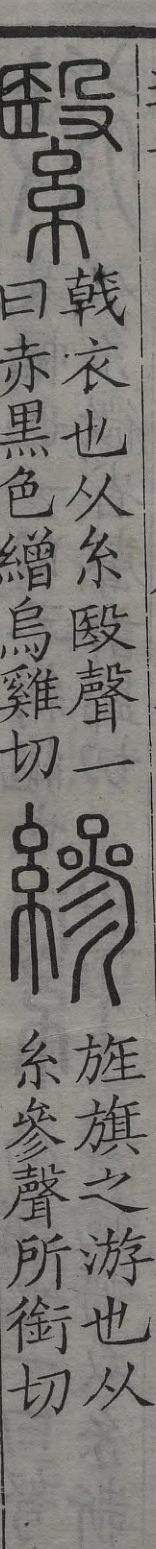 繄
戟衣也从糸殹聲一
曰赤黑色繒烏雞切
縿
旌旗之游也从
糸參聲所銜切